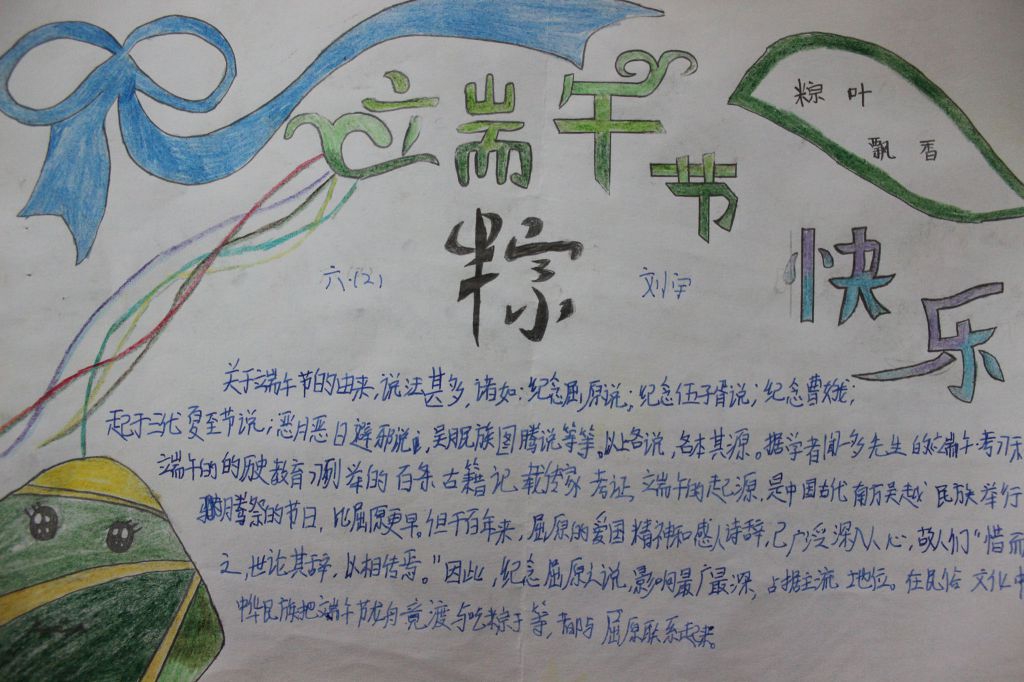 端午节
快乐
粽叶
飘香
粽
六.(2)
刘宇
关于端午节的由来,说法甚多,诸如:纪念屈原说;纪念伍子胥说;纪念曹娥说;
起于三代夏至节说;恶月恶日避邪说,吴月民族图腾说等等。以上各说,各本其源。据学者闻一多先生的《端午考》和
端午的的历史教育》列举的百余古籍记载传家考证,端午的起源,是中国古代南方吴越民族举行
图腾祭的节日,比屈原更早。但千百年来,屈原的爱国精神和感人诗辞,已广泛深入人心,故人们"惜而
之,世论其辞,以相传焉。"因此,纪念屈原之说,影响最广最深,占据主流地位。在民俗文化中
中华民族把端午节龙舟竞渡与吃粽子等,都与屈原联系起来。